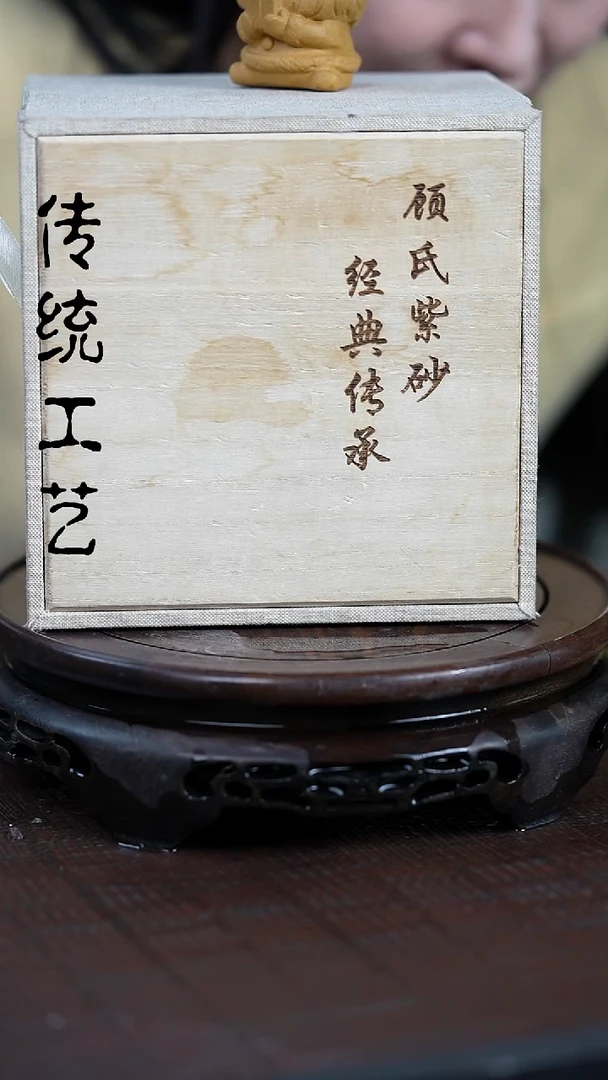 顾氏紫砂
经典传承
传统工艺